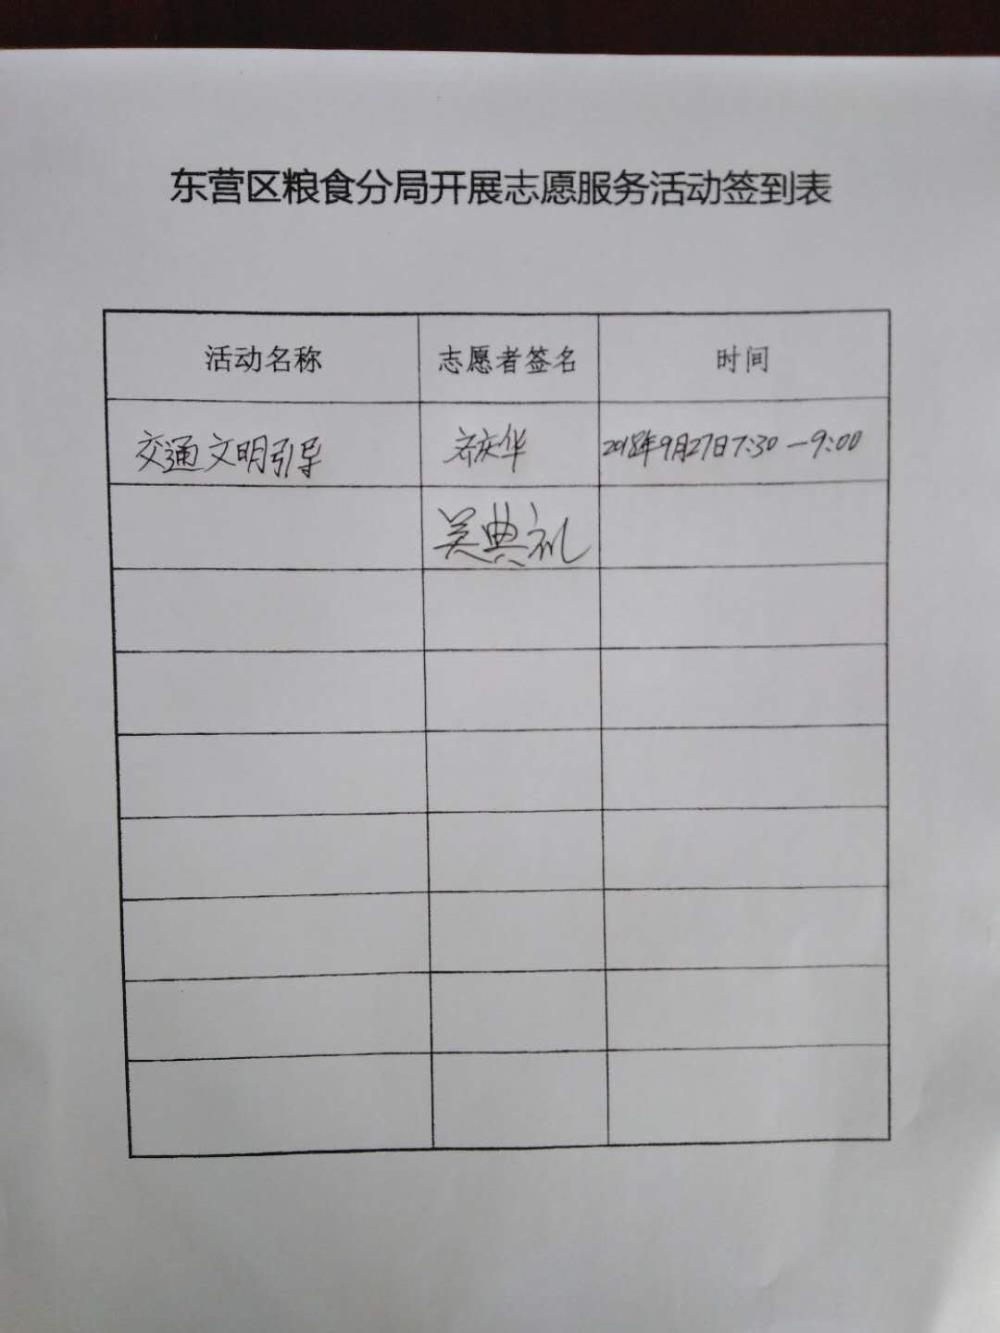 东营区粮食分局开展志愿服务活动签到表
活动名称 志愿者签名 时间
交通文明引导 庆华 2018年9月27日7:30—9:00
吴典礼